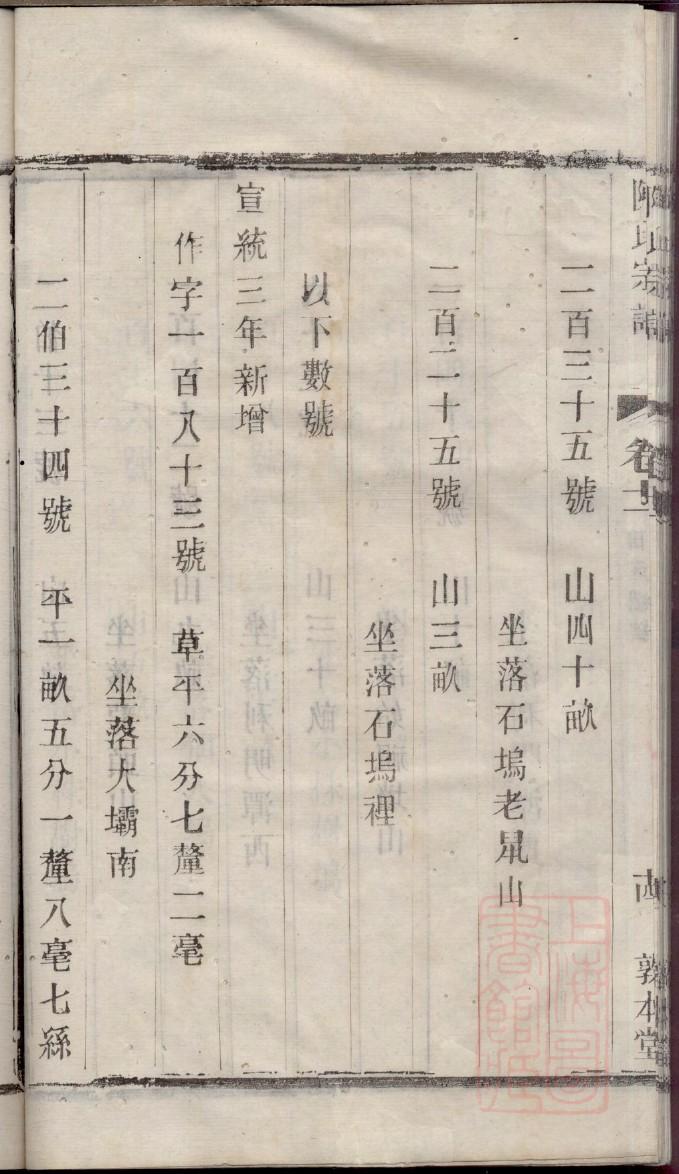 二百三十五號　山四十畝
坐落石塢老鼠山
二百二十五號　山三畝
坐落石塢裡
以下數號
宣統三年新增
作字一百八十三號　草平六分七釐二毫
坐落大壩南
二伯三十四號　平一畝五分一釐八毫七絲
宗譜
卷十二
敦本堂
上海圖書館藏